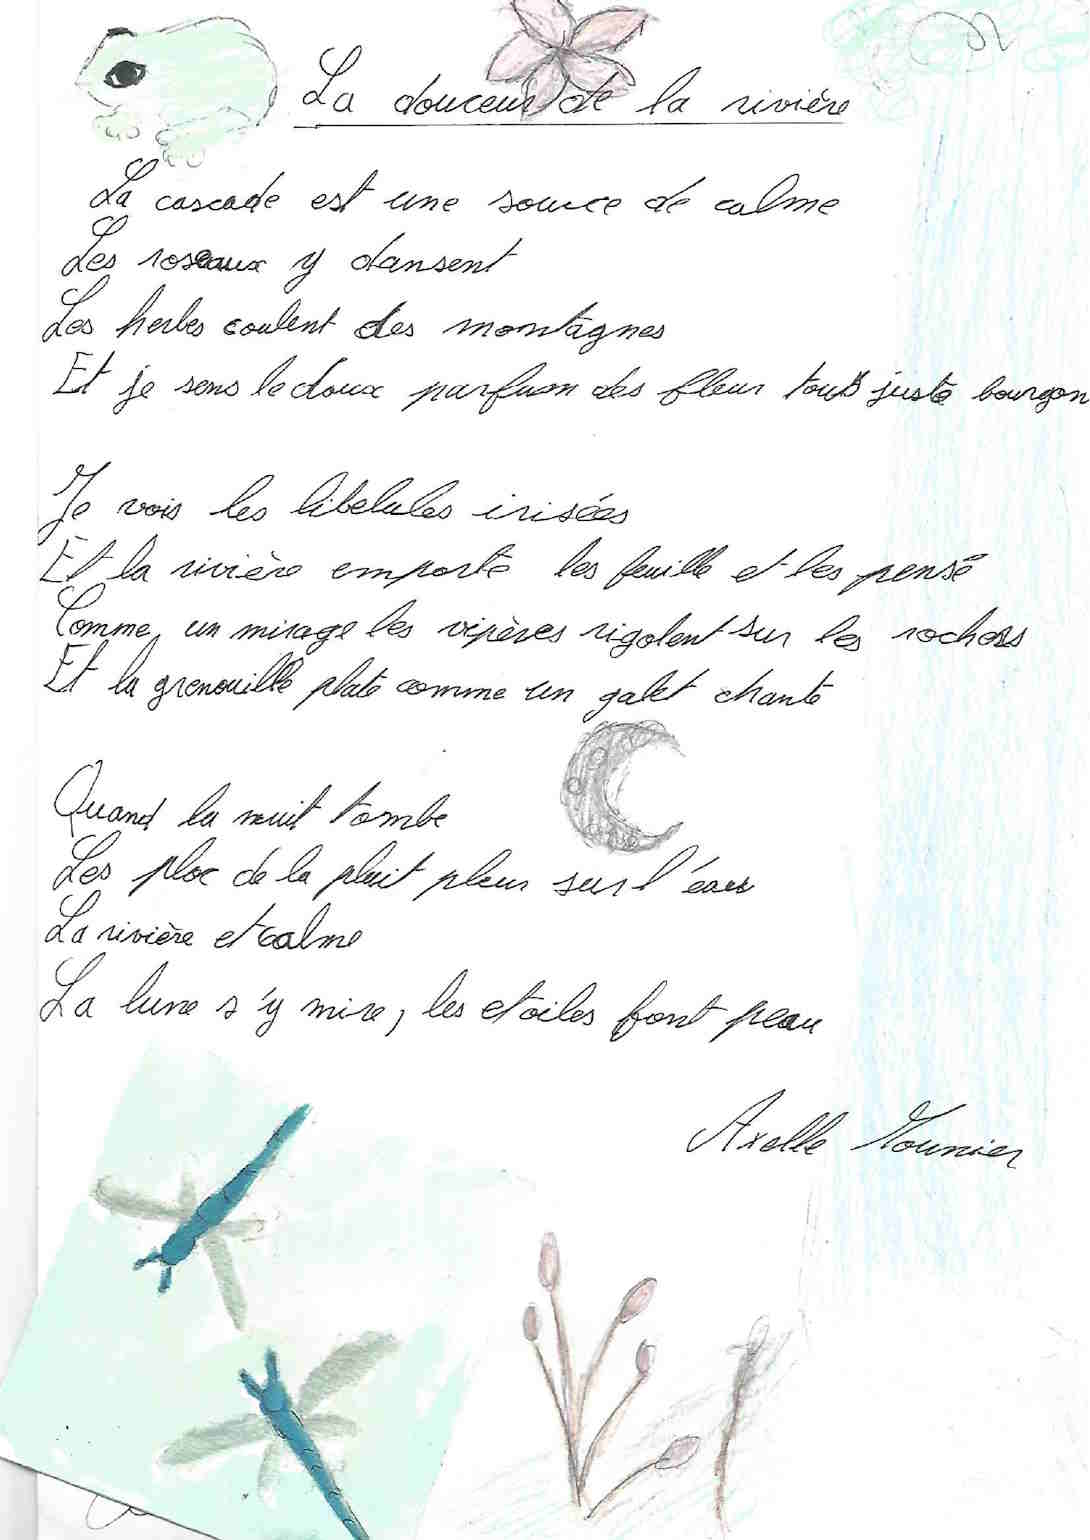 La douceur de la rivière
La cascade est une source de calme
Les roseaux y dansent
Les herbes coulent des montagnes
Et je sens le doux parfum des fleur tout juste bourgon
Je vois les libelules irisées
Et la rivière emporte les feuille et les pensé
Comme un mirage les vipères rigolent sur les rochers
Et la grenouille plate comme un galet chante
Quand la nuit tombe
Les ploc de la pluit pleur sur l'eau
La rivière et calme
La lune s'y mire, les etoiles font peau
Axelle Mounier